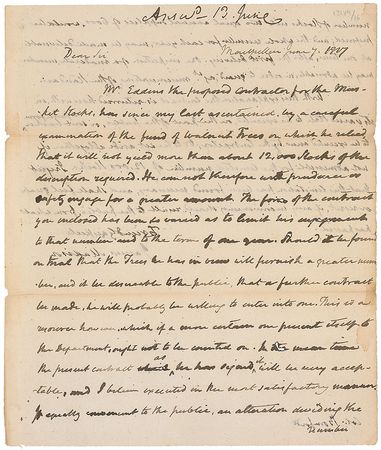 Answd. 13 June
Dear Sir Montpellier June 7. 1817
Mr. Eddins the proposed contractor for the Mus-
ket Stocks, has since my last ascertained, by a careful
examination of the fund of Walnut Trees on which he relied
that it will not yield more than about 12,000 Stocks of the
description required. He can not therefore with prudence or
safety engage for a greater amount. The form of the contract
you enclosed has been so varied as to limit his engagement
to that number and to the term of one year. Should it be found
on trial that the Trees he has in view will furnish a greater num
ber, and it be desireable to the public, that a further contract
be made, he will probably be willing to enter into one. This is a
resource however, which if a more certain one present itself to
the Department, ought not to be counted on. In the mean time
the present contract as he has signed it will be very accep-
table, and I believe executed in the most satisfactory manner.
If equally convenient to the public, an alteration dividing the
number